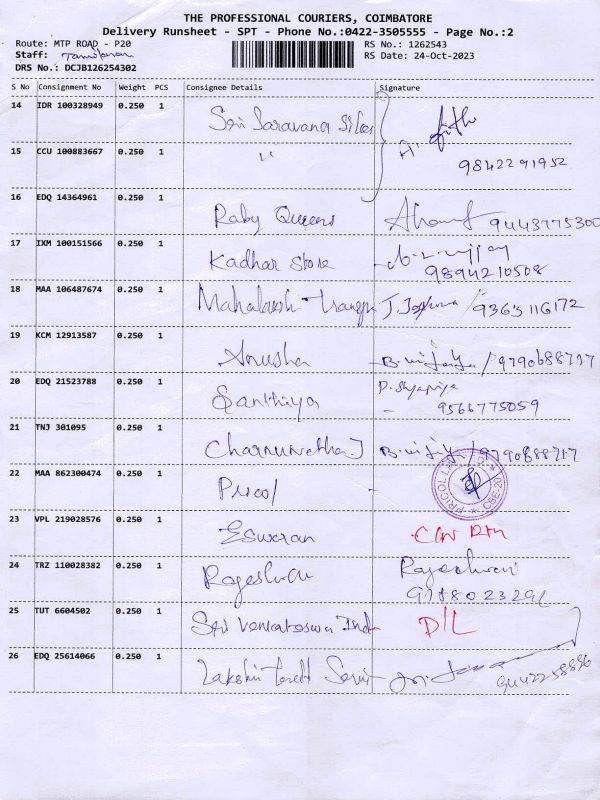 THE PROFESSIONAL COURIERS, COIMBATORE
Delivery Runsheet - SPT - Phone No.:0422-3505555 - Page No.:2
Route: MTP ROAD - P20 RS No.: 1262543
Staff: RS Date: 24-Oct-2023
DRS No.: DCJB126254302
S No Consignment No Weight PCS Consignee Details Signature
14 IDR 100328949 0.250 1 Sri Saravana
15 CCU 100883667 0.250 1 " 9842291952
16 EDQ 14364961 0.250 1 Raby Queens 9443775300
17 IXM 100151566 0.250 1 Kadhar Store 9894210508
18 MAA 106487674 0.250 1 / 9365116172
19 KCM 12913587 0.250 1 Anusha / 9790688717
20 EDQ 21523788 0.250 1 Santhiya
- 9566775059
21 TNJ 301095 0.250 1 / 9790688717
22 MAA 862300474 0.250 1 Pricol - PRICOL
23 VPL 219028576 0.250 1 Eswaran
24 TRZ 110028382 0.250 1 Rajeshwari
25 TUT 6604502 0.250 1 Sri Venkateswa Ind D/L
26 EDQ 25614066 0.250 1 Lakshmi 9442258896